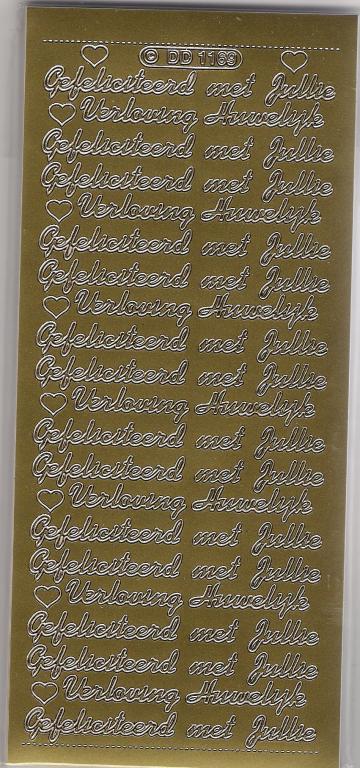 © DD 1169
Gefeliciteerd met Jullie
Verloving Huwelijk
Gefeliciteerd met Jullie
Gefeliciteerd met Jullie
Verloving Huwelijk
Gefeliciteerd met Jullie
Gefeliciteerd met Jullie
Verloving Huwelijk
Gefeliciteerd met Jullie
Gefeliciteerd met Jullie
Verloving Huwelijk
Gefeliciteerd met Jullie
Gefeliciteerd met Jullie
Verloving Huwelijk
Gefeliciteerd met Jullie
Gefeliciteerd met Jullie
Verloving Huwelijk
Gefeliciteerd met Jullie
Gefeliciteerd met Jullie
Verloving Huwelijk
Gefeliciteerd met Jullie